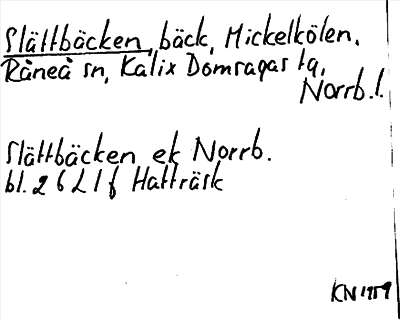 Slättbäcken, bäck, Mickelkölen.
Råneå sn, Kalix Domsagas tg,
Norrb. l.
Slättbäcken ek Norrb.
bl. 26 L 1 f Hatträsk
KN 1959